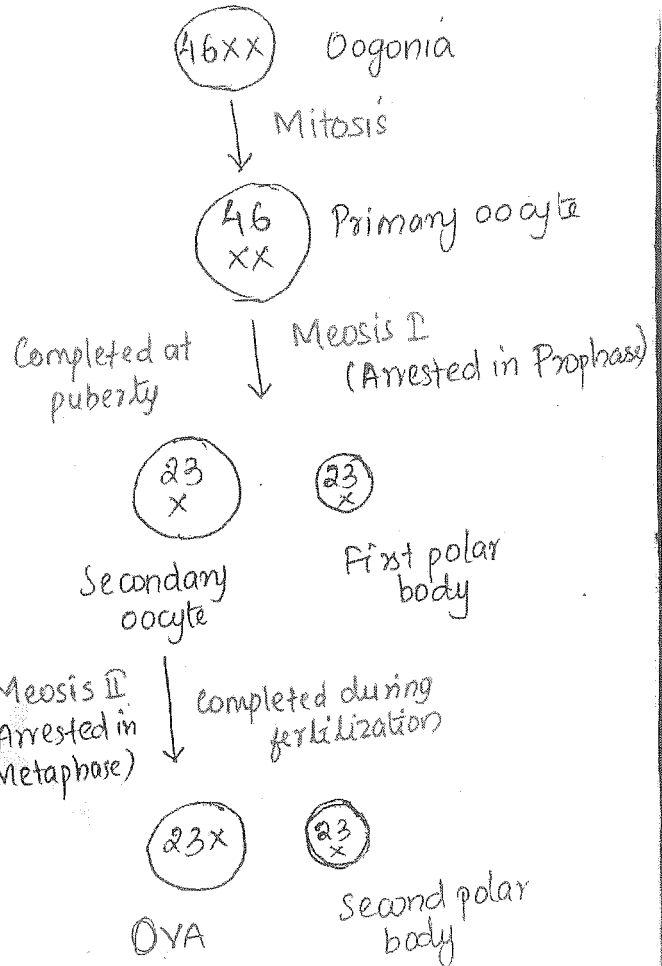 46xx Oogonia
Mitosis
46
xx
Primary oocyte
Completed at
puberty
Meosis I
(Arrested in Prophase)
23
x
23
x
Secondary
oocyte
First polar
body
Meosis II
(Arrested in
Metaphase)
Completed during
fertilization
23x
23
x
OVA
Second polar
body